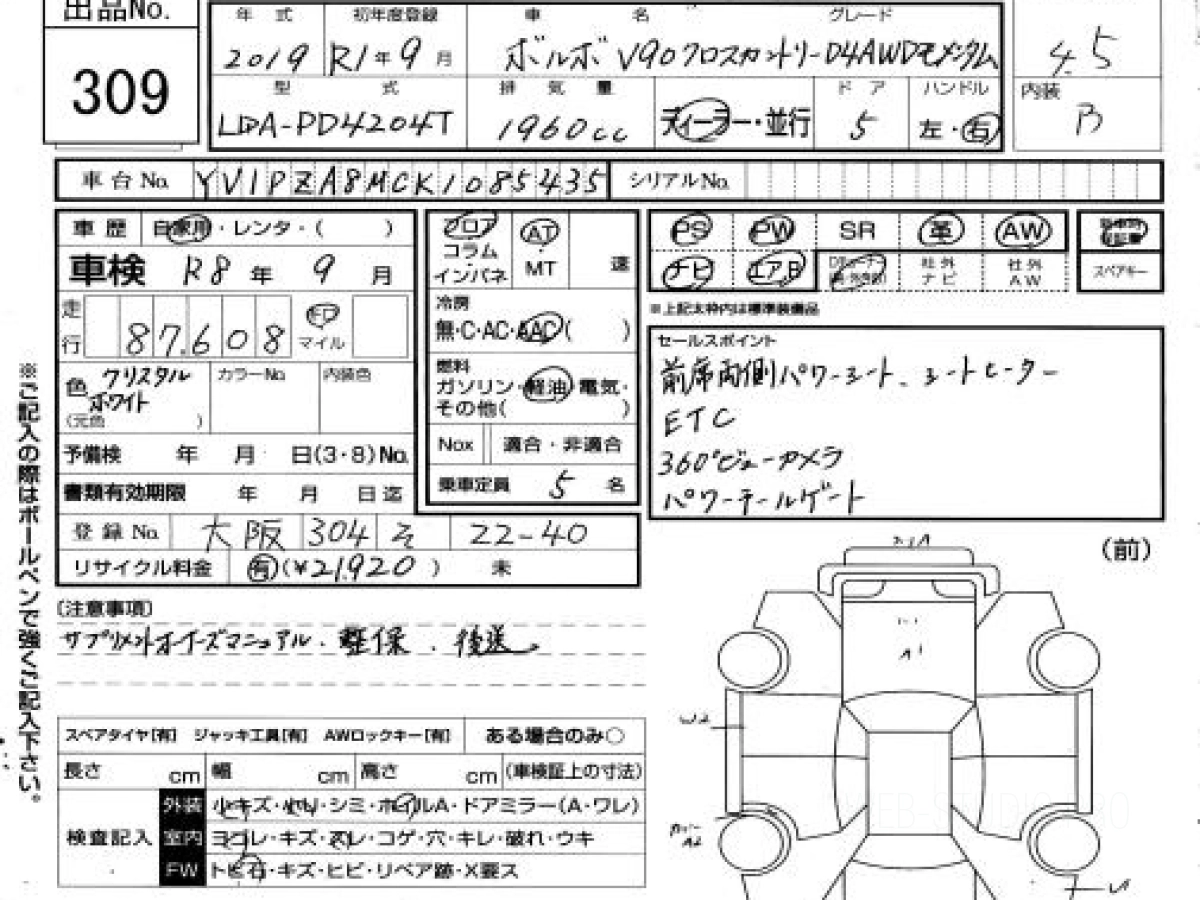 出品No.
309
年式 初年度登録 車名 グレード
2019 R1年9月 ボルボ V90クロスカントリーD4AWDモメンタム
型式 排気量 ドア ハンドル
LDA-PD4204T 1960cc ディーラー・並行 5 左・右
4.5
内装
B
車台No. YV1PZA8MCK1085435 シリアルNo.
車歴 自家用・レンタ・( )
車検 R8年9月
走行 87.608 km マイル
色 クリスタルホワイト カラーNo. 内装色
(元色 )
予備検 年 月 日(3・8)No.
書類有効期限 年 月 日迄
登録No. 大阪 304 そ 22-40
リサイクル料金 有(¥21,920) 未
フロア コラム インパネ AT MT 速
冷房
無・C・AC・AAC( )
燃料
ガソリン・軽油・電気・
その他( )
Nox 適合・非適合
乗車定員 5名
PS PW SR 革 AW
ナビ エアB 社外ナビ 社外AW
スペアキー
※上記太枠内は標準装備品
セールスポイント
前席両側パワーシート、シートヒーター
ETC
360°ビューカメラ
パワーテールゲート
※ご記入の際はボールペンで強くご記入下さい。
(注意事項)
サプリメントオーナーズマニュアル・整保・後送
スペアタイヤ[有] ジャッキ工具[有] AWロックキー[有] ある場合のみ○
長さ cm 幅 cm 高さ cm (車検証上の寸法)
検査記入
外装 小キズ・ヘコミ・シミ・ホイルA・ドアミラー(A・ワレ)
室内 ヨゴレ・キズ・スレ・コゲ・穴・キレ・破れ・ウキ
FW トビ石・キズ・ヒビ・リペア跡・X要ス
(前)
A1
U2
カバー
A2